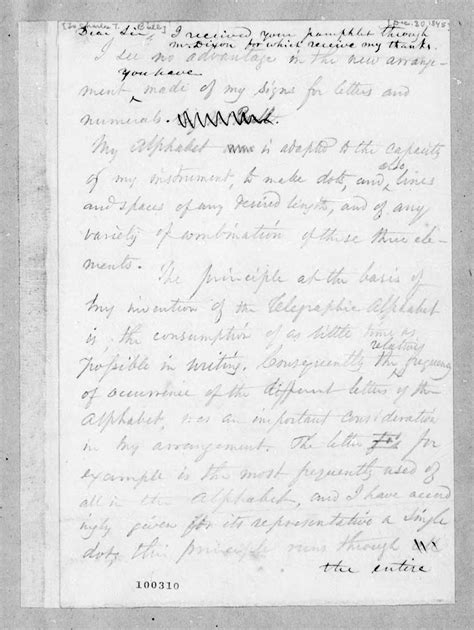 [To Charles T. Bull]
[Dec. 20, 1848]
Dear Sir, I received your pamphlet through
Mr Dixon for which receive my thanks.
I see no advantage in the new arrange-
you have
ment made of my signs for letters and
numerals.
My Alphabet is adapted to the capacity
also
of my instrument, to make dots, and lines
and spaces of any desired length, and of any
variety of combination of these three ele-
ments.
The principle at the basis of
my invention of the Telegraphic Alphabet
is the consumption of as little time as
relative
possible in writing. Consequently the frequency
of occurrence of the different letters of the
Alphabet, was an important consideration
in my arrangement. The letter for
example is the most frequently used of
all in the Alphabet, and I have accord
ingly given for its representative a single
dot, this principle runs through
the entire
100310